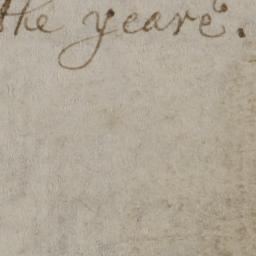 the yeare.